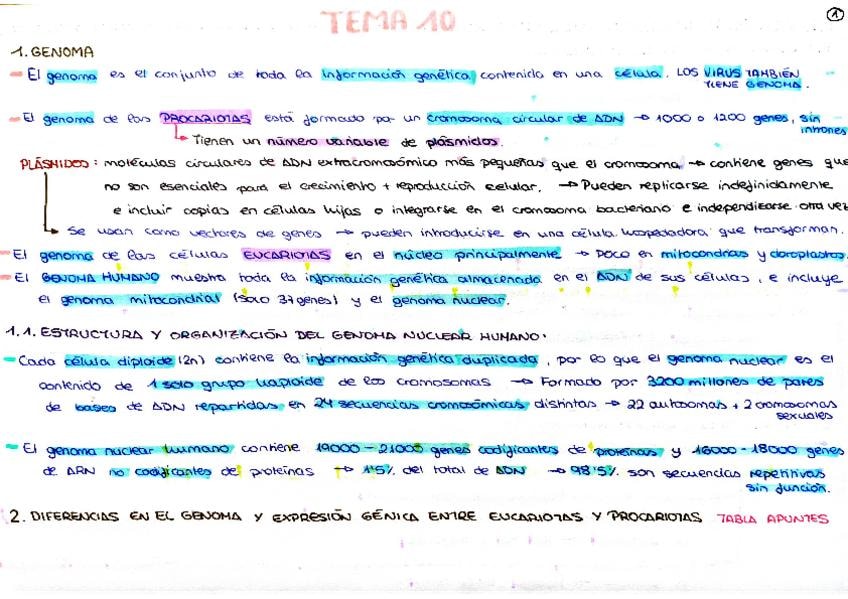 TEMA 10
1
1. GENOMA
El genoma es el conjunto de toda la información genética contenida en una célula. LOS VIRUS TAMBIÉN
TIENE GENOMA.
El genoma de las PROCARIOTAS está formado por un cromosoma circular de ADN → 1000 o 1200 genes, sin
intrones
Tienen un número variable de plásmidos.
PLÁSMIDOS: moléculas circulares de ADN extracromosómico más pequeñas que el cromosoma → contiene genes que
no son esenciales para el crecimiento + reproducción celular. → Pueden replicarse indefinidamente
e incluir copias en células hijas o integrarse en el cromosoma bacteriano e independizarse otra vez
Se usan como vectores de genes → pueden introducirse en una célula hospedadora que transforman.
El genoma de las células EUCARIOTAS en el núcleo principalmente → poco en mitocondrias y cloroplastos.
El GENOMA HUMANO muestra toda la información genética almacenada en el ADN de sus células, e incluye
el genoma mitocondrial (solo 37 genes) y el genoma nuclear.
1.1. ESTRUCTURA Y ORGANIZACIÓN DEL GENOMA NUCLEAR HUMANO.
Cada célula diploide (2n) contiene la información genética duplicada, por lo que el genoma nuclear es el
contenido de 1 solo grupo haploide de los cromosomas → Formado por 3200 millones de pares
de bases de ADN repartidas en 24 secuencias cromosómicas distintas → 22 autosomas + 2 cromosomas
sexuales
El genoma nuclear humano contiene 19000 - 21000 genes codificantes de proteínas y 16000 - 18000 genes
de ARN no codificantes de proteínas → 1'5% del total de ADN → 98'5% son secuencias repetitivas
sin función.
2. DIFERENCIAS EN EL GENOMA Y EXPRESIÓN GÉNICA ENTRE EUCARIOTAS Y PROCARIOTAS TABLA APUNTES